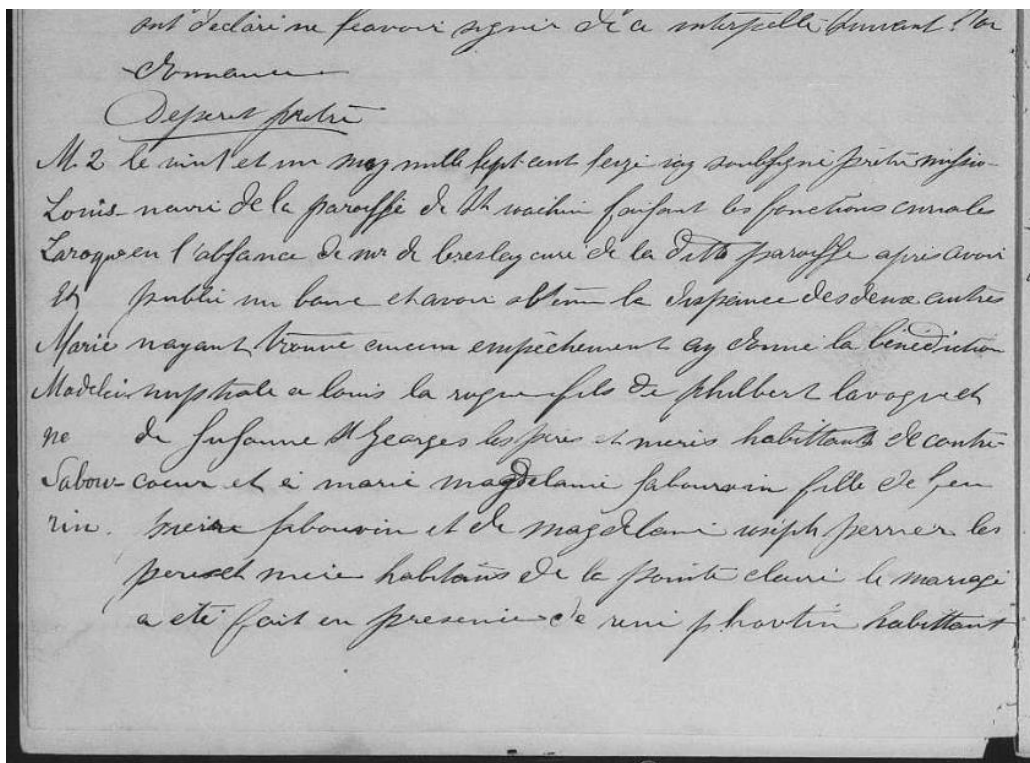 ont declaré ne scavoir signer de ce interpellé suivant l'or
donnance
Deperet prêtre
M. 2 le vint et un may mille sept cent seize iay soubsigné prêtre missio-
Louis- naire de la paroisse de St ioachin faisant les fonctions curiales
Laroque en l'absance de mr de breslay curé de la ditte paroisse apres avoir
Et publié un banc et avoir obtenu la dispance des deux autres
Marie nayant trouvé aucun empêchement ay donné la bénédiction
Madelei- nuptiale a louis la roque fils de philbert laroque et
ne de susanne St Georges les peres et meres habittants de contre
Sabou- coeur et à marie magdelaine sabourin fille de feu
rin. pierre sabourin et de magdelaine ioseph perrier les
peres et meie habitans de la pointe claire le mariage
a eté fait en presence de rene p hortin habittant